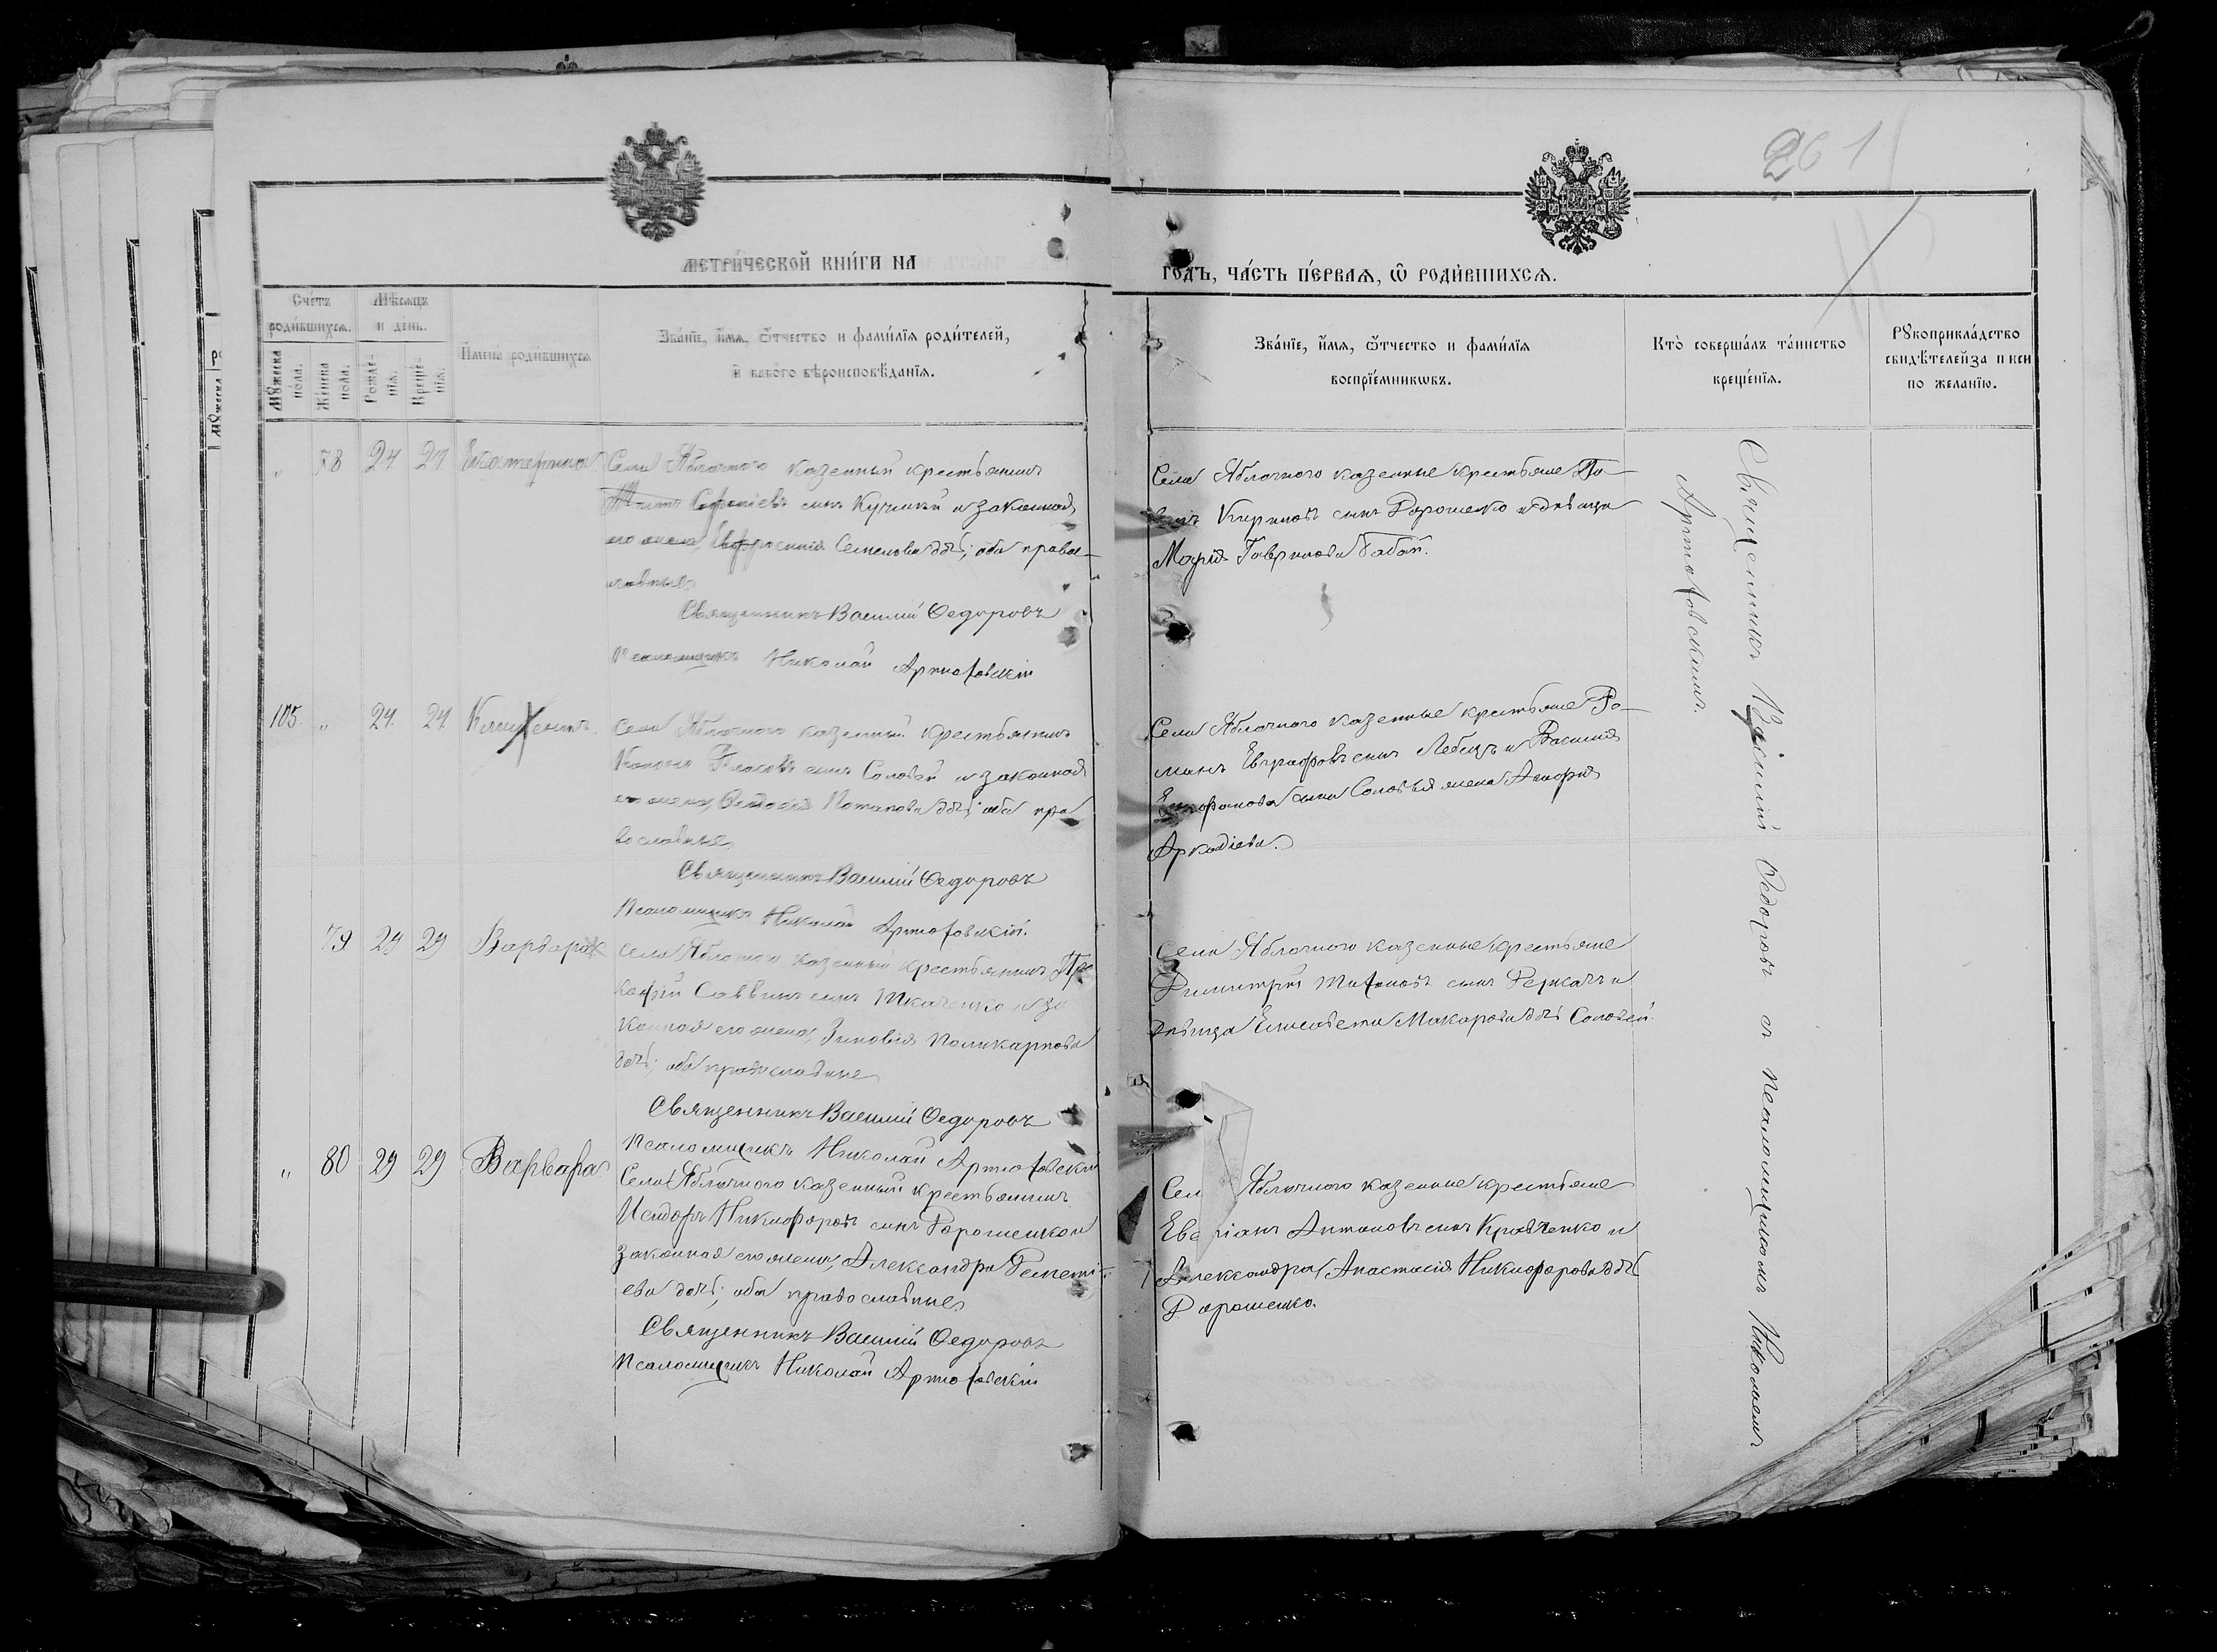 261
МЕТРИ́ЧЕСКОЙ КНИ́ГИ НА
ГОДЪ, ЧА́СТЬ ПЕ́РВАѦ, Ѿ РОДИ́ВШИХСѦ.
Сче́тъ роди́вшихсѧ.
Мѣ́сѧцъ и де́нь.
Мꙋ́жеска по́ла.
Же́нска по́ла.
Рожде́нїѧ.
Креще́нїѧ.
И҆мена̀ роди́вшихсѧ
Зва́нїе, и҆́мѧ, ѻ҆́тчество и фами́лїѧ роди́телей,
и҆ како́го вѣроисповѣ́данїѧ.
Зва́нїе, и҆́мѧ, ѻ҆́тчество и фами́лїѧ
воспрїе́мникѡвъ.
Кто̀ соверша́лъ та́инство
креще́нїѧ.
Рꙋкоприкла́дство
свидѣ́телей за
по жела́нїю.
" 78 24 24 Екатерина
Села Яблочного казенный крестьянинъ
сынъ и законная
его жена, Евфросинія Семенова дочь; оба право-
славные
Священникъ Василій Ѳедоровъ
Псаломщикъ Николай Артюховскій
Села Яблочного казенные крестьяне Па-
велъ Кириловъ сынъ Дорошенко и дѣвица
Марія Гаврилова Бабай.
105. " 24. 24
Села Яблочного казенный крестьянинъ
Власовъ сынъ Соловей и законная
его жена, Ѳеодосія Потапова дочь; оба пра-
вославные
Священникъ Василій Ѳедоровъ
Псаломщикъ Николай Артюховскій.
Села Яблочного казенные крестьяне Ро-
манъ Евграфовъ сынъ Лебедь и Василія
сына Соловья жена Агафія
Аркадіева.
79 29 29 Варвара
Села Яблочного казенный крестьянинъ Про-
кофій Саввинъ сынъ Ткаченко и за-
конная его жена, Зиновія Поликарпова
дочь; оба православные
Священникъ Василій Ѳедоровъ
Псаломщикъ Николай Артюховскій
Села Яблочного казенные крестьяне
Димитрій Тихоновъ сынъ Держачъ и
дѣвица Елисавета Макарова дочь Соловей.
" 80 29 29 Варвара
Села Яблочного казенный крестьянинъ
Исидоръ Никифоровъ сынъ Дорошенко и
законная его жена, Александра Дементі-
ева дочь; оба православные
Священникъ Василій Ѳедоровъ
Псаломщикъ Николай Артюховскій
Села Яблочного казенные крестьяне
Антоновъ сынъ Кравченко и
Александра (Анастасія Никифорова дочь
Дорошенко.
Священникъ Василій Ѳедоровъ съ псаломщикомъ Николаемъ
Артюховскимъ.